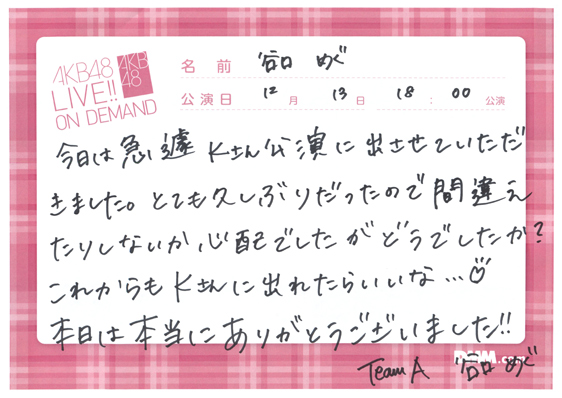 AKB48
LIVE!!
ON DEMAND
AKB
48
名前 谷口 めぐ
公演日 12月 13日 18:00公演
今日は急遽Kさん公演に出させていただ
きました。とても久しぶりだったので間違え
たりしないか心配でしたがどうでしたか?
これからもKさんに出れたらいいな...♡
本日は本当にありがとうございました!!
Team A 谷口 めぐ